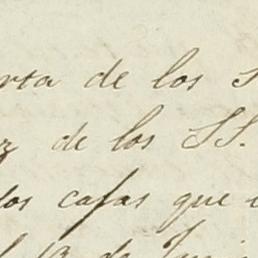 rta de los S
z de los SS.
dos casas que
de